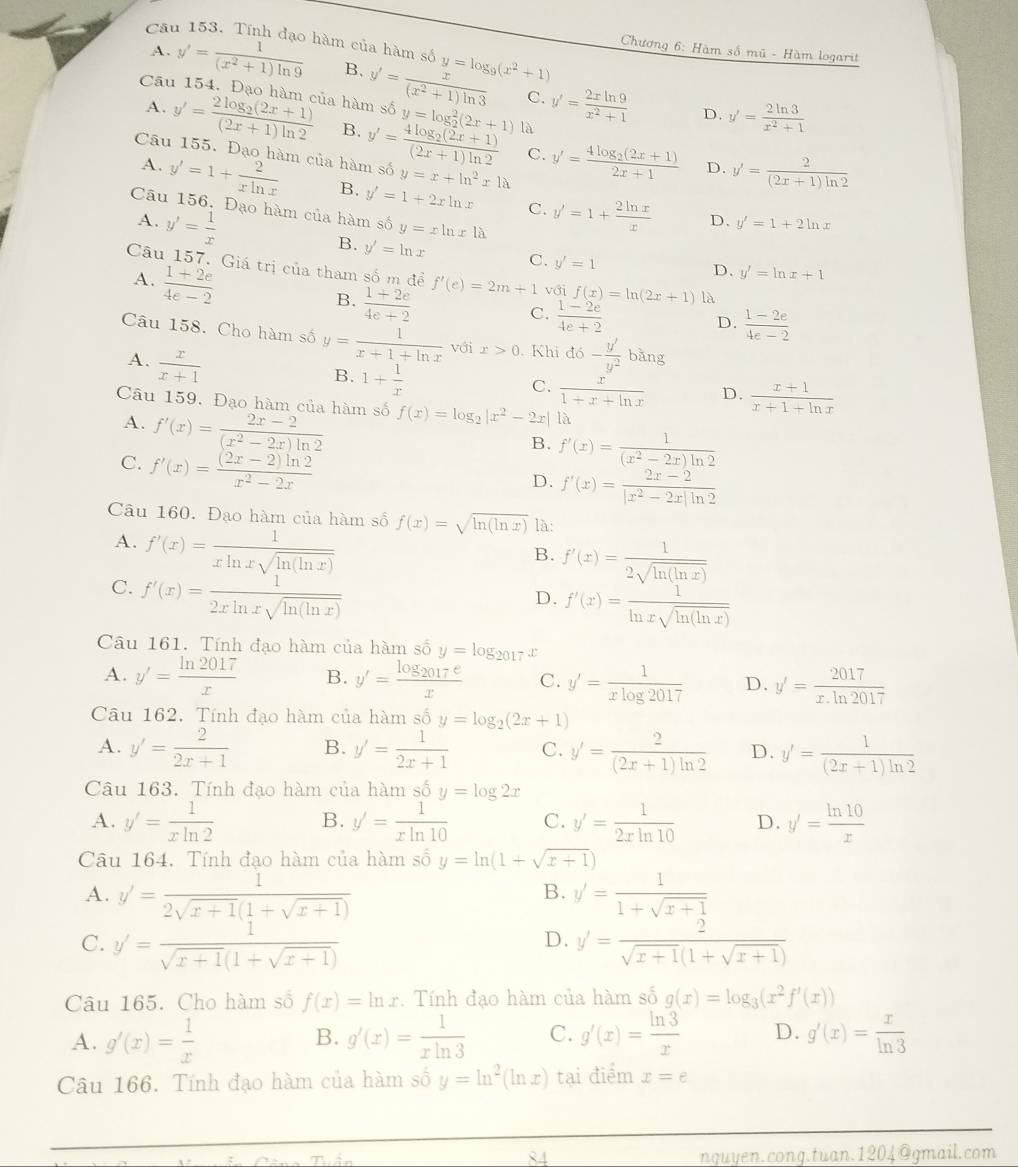 Chương 6: Hàm số mũ - Hàm logarit
Câu 153. Tính đạo hàm của hàm số y = log₉(x² + 1)
A. y' = 1/((x² + 1) ln 9) B. y' = x/((x² + 1) ln 3) C. y' = (2x ln 9)/(x² + 1) D. y' = (2 ln 3)/(x² + 1)
Câu 154. Đạo hàm của hàm số y = log₂²(2x + 1) là
A. y' = (2 log₂(2x + 1))/((2x + 1) ln 2) B. y' = (4 log₂(2x + 1))/((2x + 1) ln 2) C. y' = (4 log₂(2x + 1))/(2x + 1) D. y' = 2/((2x + 1) ln 2)
Câu 155. Đạo hàm của hàm số y = x + ln² x là
A. y' = 1 + 2/(x ln x) B. y' = 1 + 2x ln x C. y' = 1 + (2 ln x)/x D. y' = 1 + 2 ln x
Câu 156. Đạo hàm của hàm số y = x ln x là
A. y' = 1/x B. y' = ln x C. y' = 1 D. y' = ln x + 1
Câu 157. Giá trị của tham số m để f'(e) = 2m + 1 với f(x) = ln(2x + 1) là
A. (1 + 2e)/(4e − 2) B. (1 + 2e)/(4e + 2) C. (1 − 2e)/(4e + 2) D. (1 − 2e)/(4e − 2)
Câu 158. Cho hàm số y = 1/(x + 1 + ln x) với x > 0. Khi đó −y'/y² bằng
A. x/(x + 1) B. 1 + 1/x C. x/(1 + x + ln x) D. (x + 1)/(x + 1 + ln x)
Câu 159. Đạo hàm của hàm số f(x) = log₂ |x² − 2x| là
A. f'(x) = (2x − 2)/((x² − 2x) ln 2) B. f'(x) = 1/((x² − 2x) ln 2)
C. f'(x) = ((2x − 2) ln 2)/(x² − 2x) D. f'(x) = (2x − 2)/(|x² − 2x| ln 2)
Câu 160. Đạo hàm của hàm số f(x) = √(ln(ln x)) là:
A. f'(x) = 1/(x ln x √(ln(ln x))) B. f'(x) = 1/(2√(ln(ln x)))
C. f'(x) = 1/(2x ln x √(ln(ln x))) D. f'(x) = 1/(ln x √(ln(ln x)))
Câu 161. Tính đạo hàm của hàm số y = log₂₀₁₇ x
A. y' = (ln 2017)/x B. y' = (log₂₀₁₇ e)/x C. y' = 1/(x log 2017) D. y' = 2017/(x. ln 2017)
Câu 162. Tính đạo hàm của hàm số y = log₂(2x + 1)
A. y' = 2/(2x + 1) B. y' = 1/(2x + 1) C. y' = 2/((2x + 1) ln 2) D. y' = 1/((2x + 1) ln 2)
Câu 163. Tính đạo hàm của hàm số y = log 2x
A. y' = 1/(x ln 2) B. y' = 1/(x ln 10) C. y' = 1/(2x ln 10) D. y' = (ln 10)/x
Câu 164. Tính đạo hàm của hàm số y = ln(1 + √(x + 1))
A. y' = 1/(2√(x + 1)(1 + √(x + 1))) B. y' = 1/(1 + √(x + 1))
C. y' = 1/(√(x + 1)(1 + √(x + 1))) D. y' = 2/(√(x + 1)(1 + √(x + 1)))
Câu 165. Cho hàm số f(x) = ln x. Tính đạo hàm của hàm số g(x) = log₃(x² f'(x))
A. g'(x) = 1/x B. g'(x) = 1/(x ln 3) C. g'(x) = (ln 3)/x D. g'(x) = x/(ln 3)
Câu 166. Tính đạo hàm của hàm số y = ln²(ln x) tại điểm x = e
84 nguyen.cong.tuan.1204@gmail.com